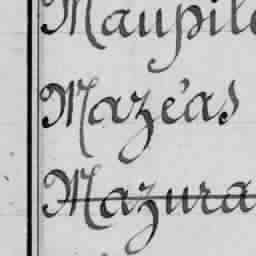 Maupil
Mazéas
Mazura